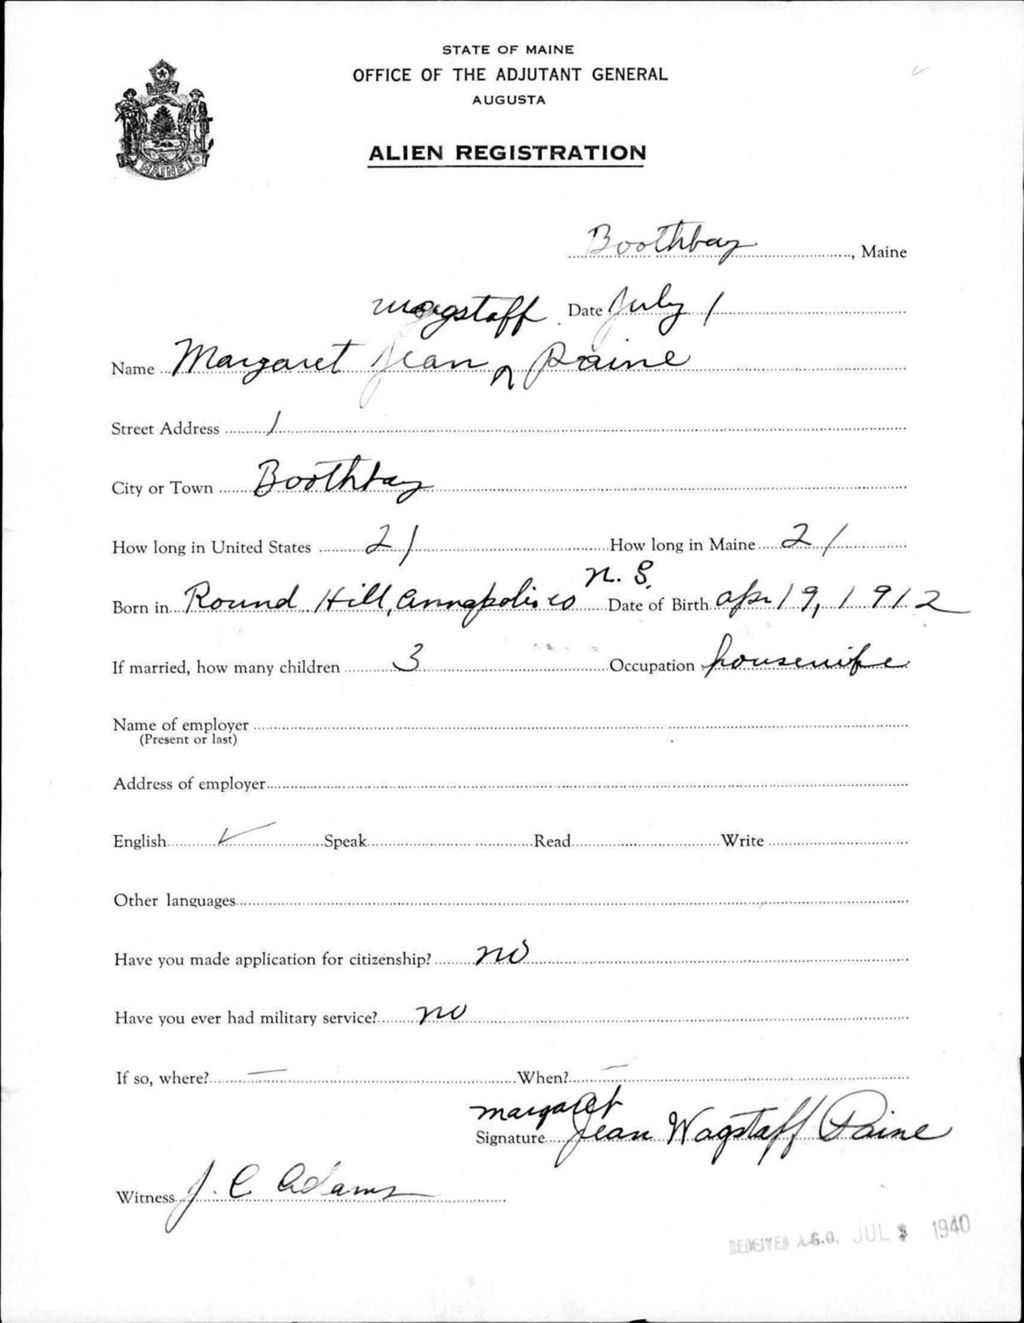 STATE OF MAINE
OFFICE OF THE ADJUTANT GENERAL
AUGUSTA
ALIEN REGISTRATION
MAINE
Boothbay, Maine
Wagstaff Date July 1
Name Margaret Jean ^ Paine
Street Address 1
City or Town Boothbay
How long in United States 21 How long in Maine 21
N. S.
Born in Round Hill, Annapolis co Date of Birth Apr 19, 1912
If married, how many children 3 Occupation housewife
Name of employer
(Present or last)
Address of employer
English ✓ Speak Read Write
Other languages
Have you made application for citizenship? no
Have you ever had military service? no
If so, where? — When? —
Margaret
Signature Jean Wagstaff Paine
Witness J. C Adams
RECEIVED A.G.O. JUL 1940